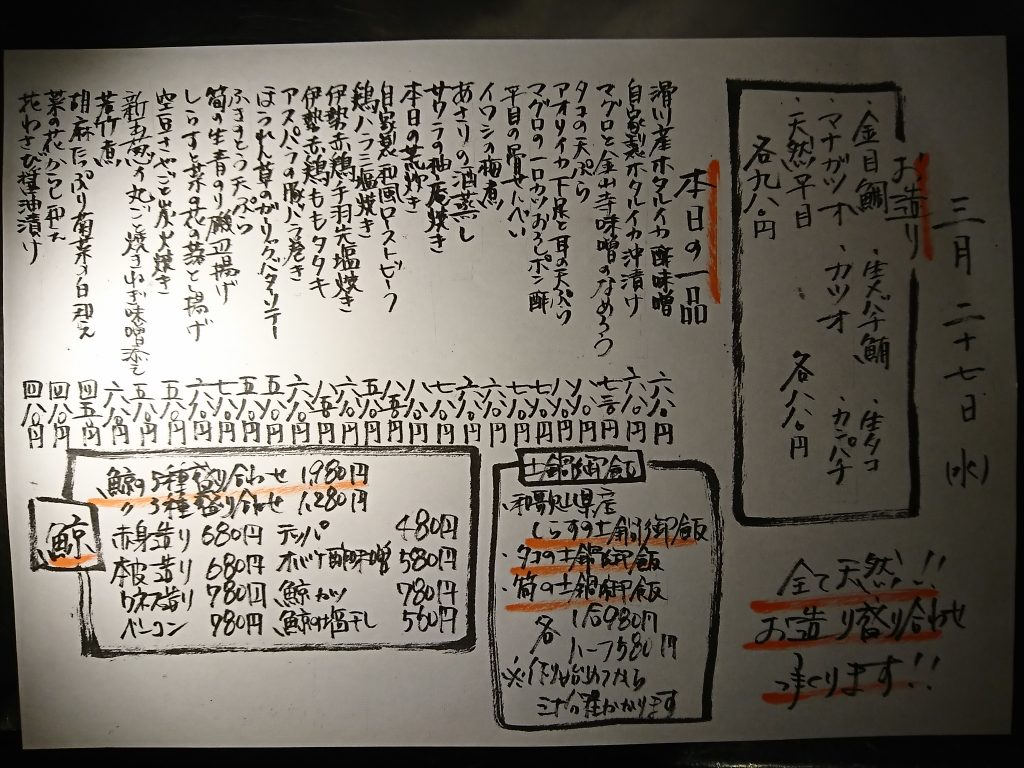 三月二十七日(水)
お造り
・金目鯛 ・生メバチ鮪 ・生タコ
・マナガツオ ・カツオ ・カンパチ
・天然平目 各八八〇円
各九八〇円
全て天然!!
お造り盛り合わせ
承ります!!
本日の一品
滑川産ホタルイカ酢味噌 六八〇円
自家製ホタルイカ沖漬け 六八〇円
マグロと金山寺味噌のなめろう 七三〇円
タコの天ぷら 八八〇円
アオリイカ下足と耳の天ぷら 七八〇円
マグロの一口カツおろしポン酢 七八〇円
平目の骨せんべい
イワシの梅煮
あさりの酒蒸し
サワラの柚庵焼き
本日の荒炊き
自家製和風ローストビーフ
鶏ハラミ塩焼き
伊勢赤鶏手羽先塩焼き
伊勢赤鶏ももタタキ
アスパラの豚バラ巻き
ほうれん草のガーリックバターソテー
ふきのとう天ぷら
筍の生青のり磯辺揚げ
しらすと菜の花の落とし揚げ
空豆さやごと炭火焼き
新玉葱の丸ごと焼き ねぎ味噌添え
若竹煮
胡麻たっぷり菊菜の白和え 四五〇円
菜の花からし和え 四八〇円
花わさび醤油漬け 四八〇円
土鍋御飯
・和歌山県産
しらすの土鍋御飯
・タコの土鍋御飯
・筍の土鍋御飯
各 1合980円
ハーフ580円
鯨
鯨の5種盛り合わせ 1,980円
〃 3種盛り合わせ 1,280円
赤身造り 680円 テッパ 480円
本皮造り 680円 オバケ酢味噌 580円
ウネス造り 780円 鯨カツ 780円
ベーコン 980円 鯨の塩干し 580円